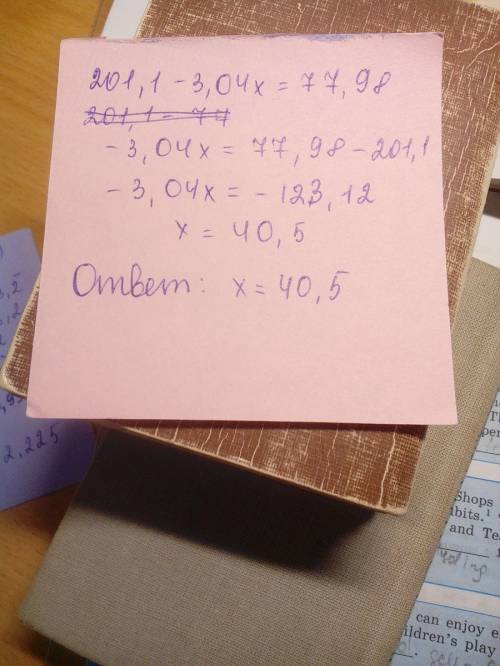 201,1 - 3,04x = 77,98
201,1 - 77
- 3,04x = 77,98 - 201,1
- 3,04x = - 123,12
x = 40,5
Ответ: x = 40,5
2,225
Shops
and Tea
can enjoy e
ildren's play